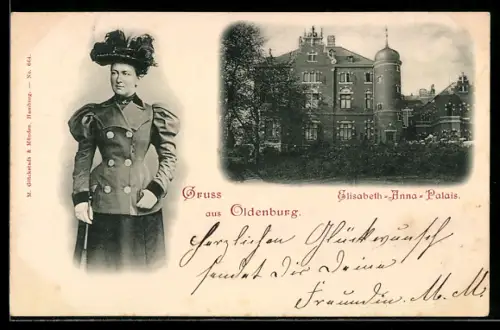 M. Glückstadt & Münden, Hamburg. — No. 654.
Gruss
aus Oldenburg.
Elisabeth-Anna-Palais.
Herzlichen Glückwunsch
sendet Dir Deine
Freundin M. M.